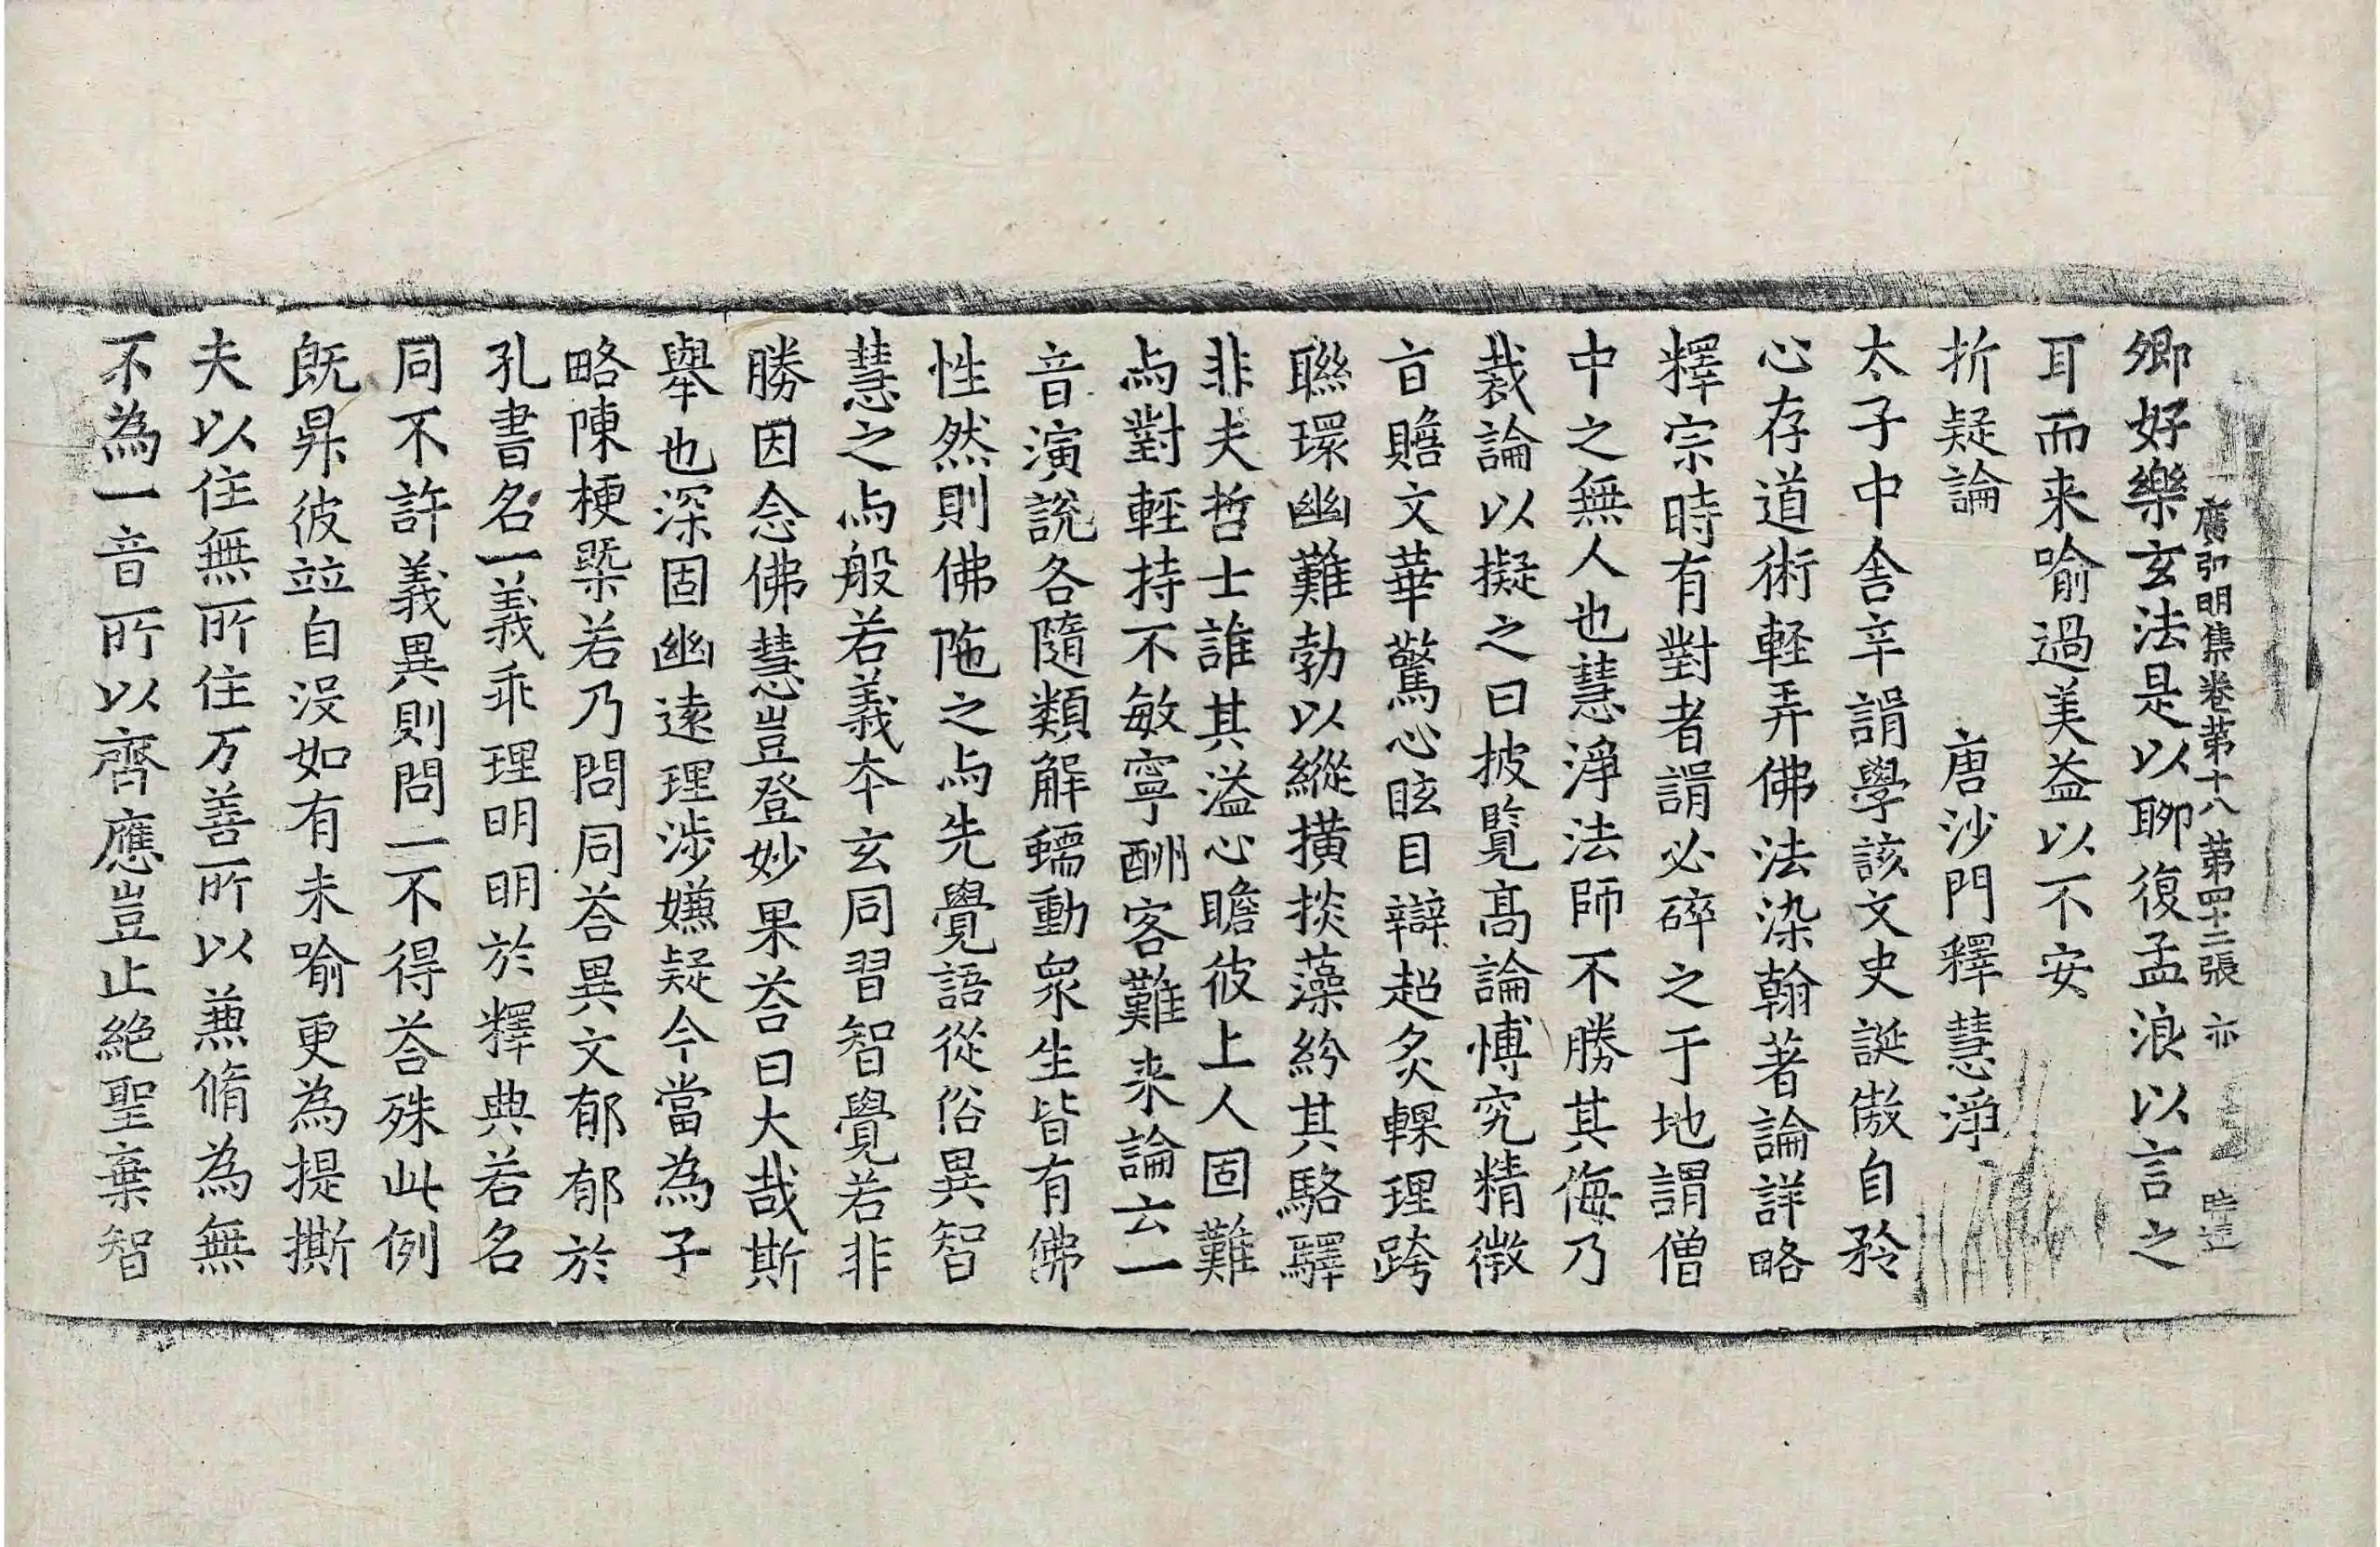 廣弘明集卷第十八 第四十二張 亦
卿好樂玄法是以聊復孟浪以言之
耳而来喻過美益以不安
折疑論 唐沙門釋慧淨
太子中舍辛諝學該文史誕傲自矜
心存道術輕弄佛法染翰著論詳略
釋宗時有對者諝必碎之于地謂僧
中之無人也慧淨法師不勝其侮乃
裁論以擬之曰披覧高論博究精微
旨贍文華驚心眩目辯超炙輠理跨
聯環幽難勃以縱撗掞藻紛其駱驛
非夫哲士誰其溢心瞻彼上人固難
与對輕持不敏寧酬客難来論云一
音演說各隨類解蠕動衆生皆有佛
性然則佛陁之与先覺語從俗異智
慧之与般若義夲玄同習智覺若非
勝因念佛慧豈登妙果荅曰大哉斯
舉也深固幽遠理涉嫌疑今當為子
略陳梗槩若乃問同荅異文郁郁於
孔書名一義乖理明明於釋典若名
同不許義異則問一不得荅殊此例
旣昇彼竝自沒如有未喻更為提撕
夫以住無所住万善所以兼脩為無
不為一音所以齊應豈止絕聖棄智